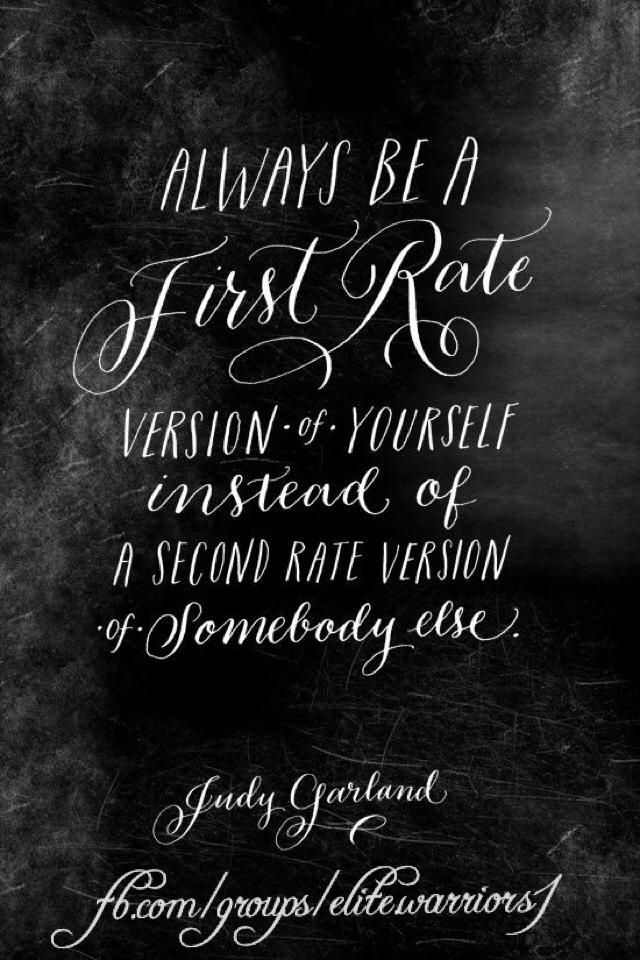 ALWAYS BE A
First Rate
VERSION · of · YOURSELF
instead of
A SECOND RATE VERSION
· of · Somebody else.
Judy Garland
fb.com/groups/elitewarriors1